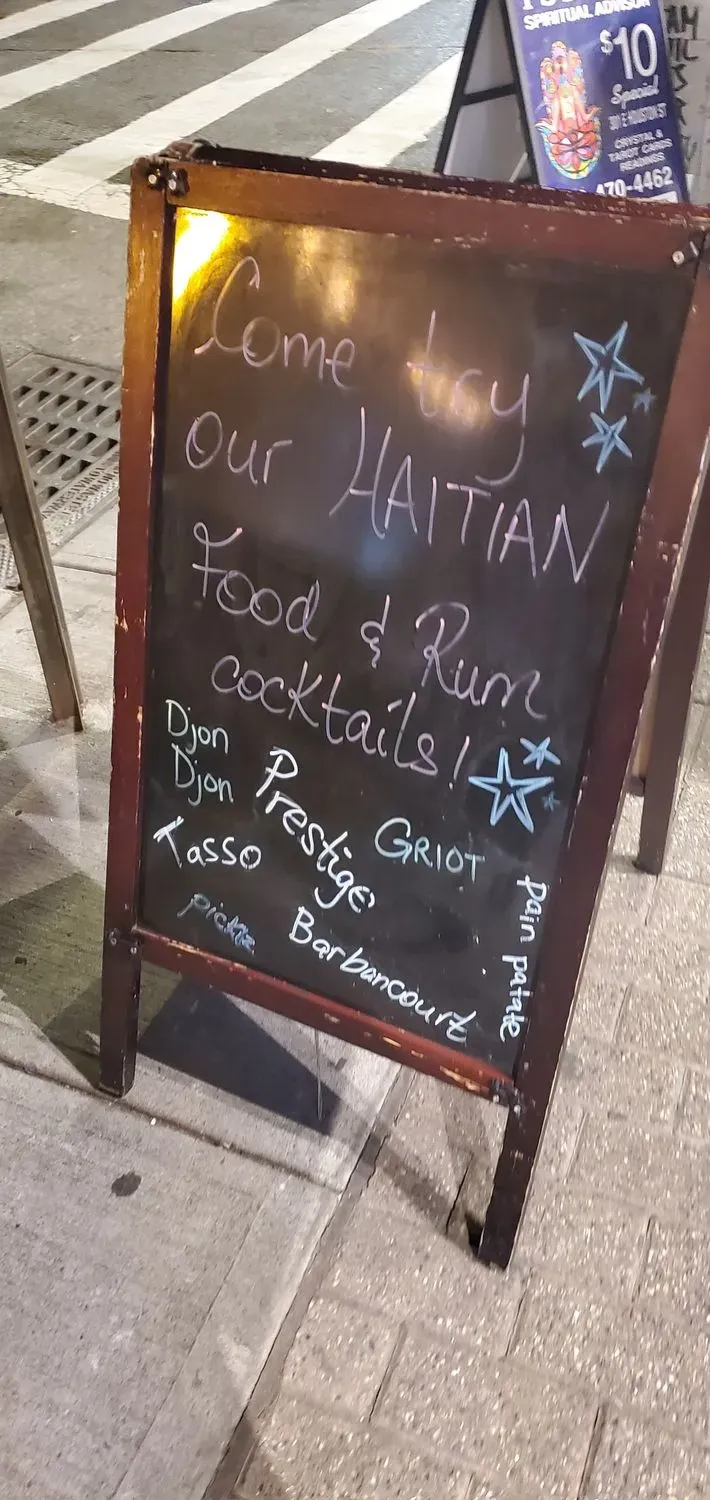 SPIRITUAL ADVISOR
$10
Special
301 E HOUSTON ST
CRYSTAL &
TAROT CARDS
READINGS
470-4462
Come try
our HAITIAN
Food & Rum
cocktails!
Djon
Djon
Prestige
GRIOT
Tasso
pickliz
Barbancourt
pain patate